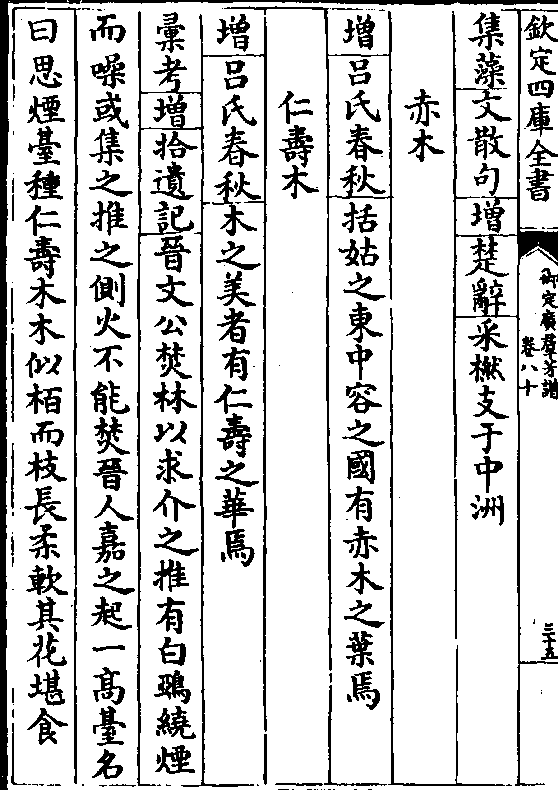 欽定四庫全書
御定廣羣芳譜
卷八十
三十五
集藻文散句增楚辭采橪支于中洲
赤木
增呂氏春秋括姑之東中容之國有赤木之葉焉
仁壽木
增呂氏春秋木之美者有仁壽之華焉
彙考增拾遺記晉文公焚林以求介之推有白鵶繞煙
而噪或集之推之側火不能焚晉人嘉之起一髙臺名
曰思煙臺種仁壽木木似栢而枝長柔軟其花堪食